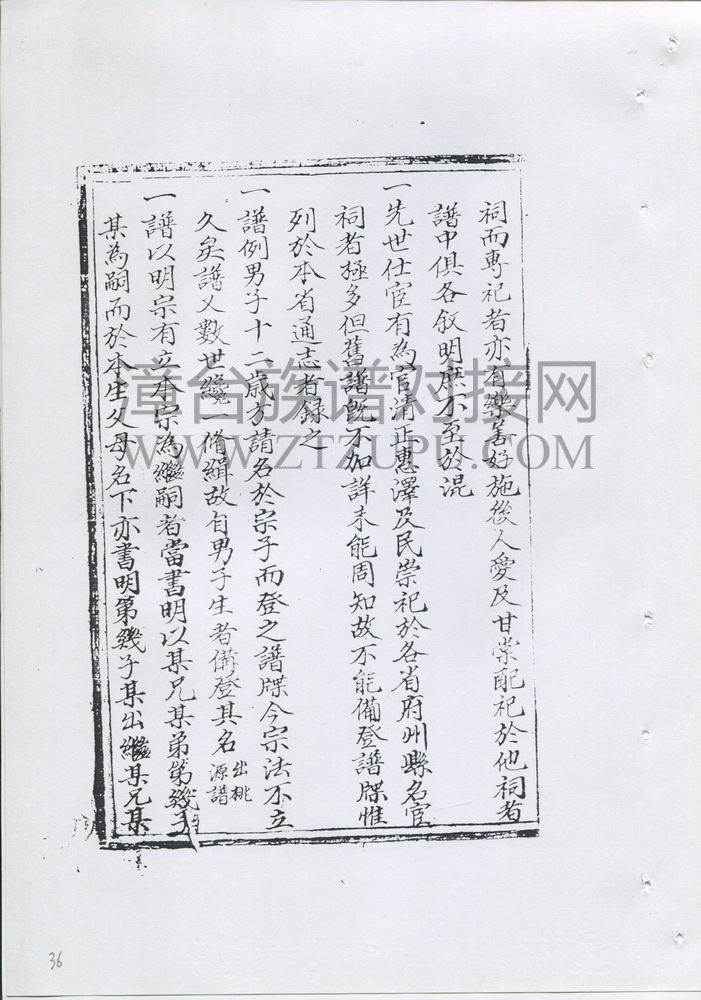 祠而專祀者亦有樂善好施後人愛及甘棠配祀於他祠者
譜中俱各敘明庶不至於混
一先世仕宦有為官清正惠澤及民崇祀於各省府州縣名宦
祠者極多但舊譜既不加詳未能周知故不能備登譜牒惟
列於本省通志者錄之
一譜例男子十二歲方請名於宗子而登之譜牒今宗法不立
久矣譜又數世纔一脩緝故自男子生者備登其名出桃源譜
一譜以明宗有立本宗為繼嗣者當書明以某兄某弟第幾子
某為嗣而於本生父母名下亦書明第幾子某出繼某兄某
漳台族谱对接网
WWW.ZTZUPU.COM
36